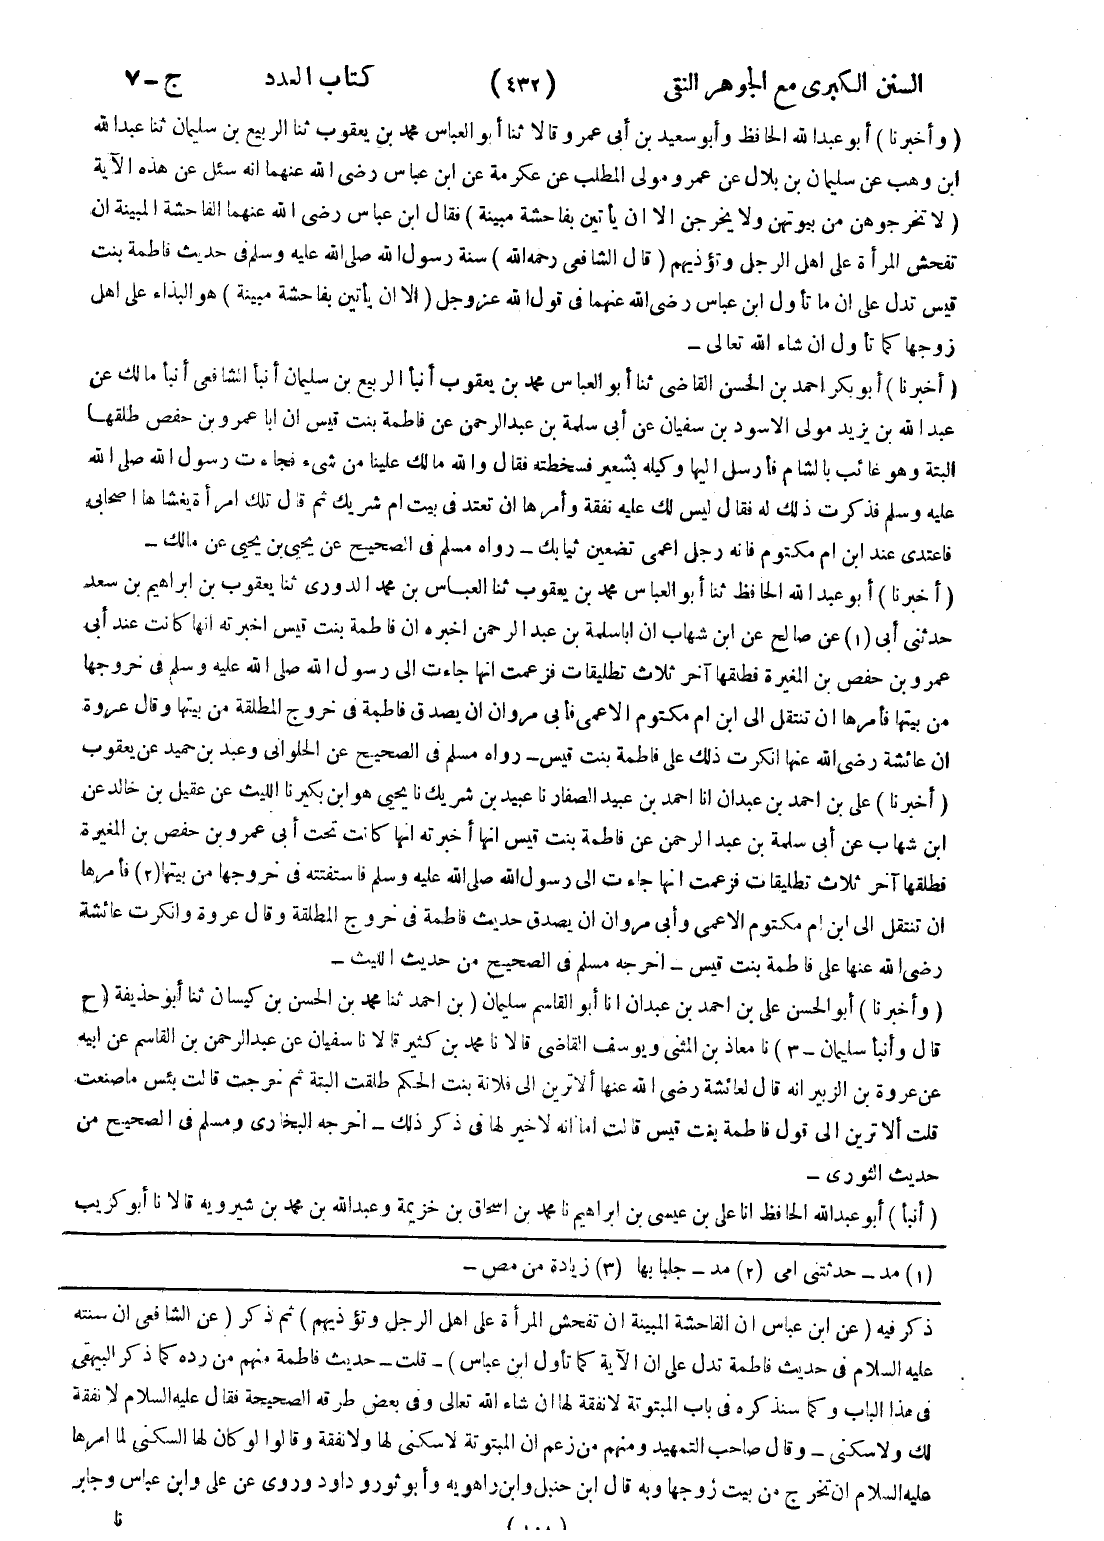 السنن الكبرى مع الجوهر النقى (٤٣٢) كتاب العدد ج - ٧
( وأخبرنا ) أبو عبد الله الحافظ وأبو سعيد بن أبى عمرو قالا ثنا أبو العباس محمد بن يعقوب ثنا الربيع بن سليمان ثنا عبد الله
ابن وهب عن سليمان بن بلال عن عمرو مولى المطلب عن عكرمة عن ابن عباس رضى الله عنهما انه سئل عن هذه الآية
( لا تخرجوهن من بيوتهن ولا يخرجن الا ان يأتين بفاحشة مبينة ) فقال ابن عباس رضى الله عنهما الفاحشة المبينة ان
تفحش المرأة على اهل الرجل وتؤذيهم ( قال الشافعى رحمه الله ) سنة رسول الله صلى الله عليه وسلم فى حديث فاطمة بنت
قيس تدل على ان ما تأول ابن عباس رضى الله عنهما فى قول الله عز وجل ( الا ان يأتين بفاحشة مبينة ) هو البذاء على اهل
زوجها كما تأول ان شاء الله تعالى -
( أخبرنا ) أبو بكر احمد بن الحسن القاضى ثنا أبو العباس محمد بن يعقوب أنبأ الربيع بن سليمان أنبأ الشافعى أنبأ مالك عن
عبد الله بن يزيد مولى الاسود بن سفيان عن أبى سلمة بن عبد الرحمن عن فاطمة بنت قيس ان ابا عمرو بن حفص طلقها
البتة وهو غائب بالشام فأرسل اليها وكيله بشعير فسخطته فقال والله مالك علينا من شىء فجاءت رسول الله صلى الله
عليه وسلم فذكرت ذلك له فقال ليس لك عليه نفقة وأمرها ان تعتد فى بيت ام شريك ثم قال تلك امرأة يغشاها اصحابى
فاعتدى عند ابن ام مكتوم فانه رجل اعمى تضعين ثيابك - رواه مسلم فى الصحيح عن يحيى بن يحيى عن مالك -
( أخبرنا ) أبو عبد الله الحافظ ثنا أبو العباس محمد بن يعقوب ثنا العباس بن محمد الدورى ثنا يعقوب بن ابراهيم بن سعد
حدثنى أبى (١) عن صالح عن ابن شهاب ان ابا سلمة بن عبد الرحمن اخبره ان فاطمة بنت قيس اخبرته انها كانت عند أبى
عمرو بن حفص بن المغيرة فطلقها آخر ثلاث تطليقات فزعمت انها جاءت الى رسول الله صلى الله عليه وسلم فى خروجها
من بيتها فأمرها ان تنتقل الى ابن ام مكتوم الاعمى فأبى مروان ان يصدق فاطمة فى خروج المطلقة من بيتها وقال عروة
ان عائشة رضى الله عنها انكرت ذلك على فاطمة بنت قيس - رواه مسلم فى الصحيح عن الحلوانى وعبد بن حميد عن يعقوب
( أخبرنا ) على بن احمد بن عبدان انا احمد بن عبيد الصفار نا عبيد بن شريك نا يحيى هو ابن بكير نا الليث عن عقيل بن خالد عن
ابن شهاب عن أبى سلمة بن عبد الرحمن عن فاطمة بنت قيس انها أخبرته انها كانت تحت أبى عمرو بن حفص بن المغيرة
فطلقها آخر ثلاث تطليقات فزعمت انها جاءت الى رسول الله صلى الله عليه وسلم فاستفتته فى خروجها من بيتها (٢) فأمرها
ان تنتقل الى ابن ام مكتوم الاعمى وأبى مروان ان يصدق حديث فاطمة فى خروج المطلقة وقال عروة وانكرت عائشة
رضى الله عنها على فاطمة بنت قيس - اخرجه مسلم فى الصحيح من حديث الليث -
( وأخبرنا ) أبو الحسن على بن احمد بن عبدان انا أبو القاسم سليمان ( بن احمد ثنا محمد بن الحسن بن كيسان ثنا أبو حذيفة ( ح
قال وأنبأ سليمان - ٣ ) نا معاذ بن المثنى ويوسف القاضى قالا نا محمد بن كثير قالا نا سفيان عن عبد الرحمن بن القاسم عن ابيه
عن عروة بن الزبير انه قال لعائشة رضى الله عنها ألا ترين الى فلانة بنت الحكم طلقت البتة ثم خرجت قالت بئس ما صنعت
قلت ألا ترين الى قول فاطمة بنت قيس قالت اما انه لا خير لها فى ذكر ذلك - اخرجه البخارى ومسلم فى الصحيح من
حديث الثورى -
( أنبأ ) أبو عبد الله الحافظ انا على بن عيسى بن ابراهيم نا محمد بن اسحاق بن خزيمة وعبد الله بن محمد بن شيرويه قالا نا أبو كريب
(١) مد - حدثتنى امى (٢) مد - جلبابها (٣) زيادة من مص -
ذكر فيه ( عن ابن عباس ان الفاحشة المبينة ان تفحش المرأة على اهل الرجل وتؤذيهم ) ثم ذكر ( عن الشافعى ان سنته
عليه السلام فى حديث فاطمة تدل على ان الآية كما تأول ابن عباس ) - قلت - حديث فاطمة منهم من رده كما ذكر البيهقى
فى هذا الباب وكما سنذكره فى باب المبتوتة لا نفقة لها ان شاء الله تعالى وفى بعض طرقه الصحيحة فقال عليه السلام لا نفقة
لك ولا سكنى - وقال صاحب التمهيد ومنهم من زعم ان المبتوتة لا سكنى لها ولا نفقة وقالوا لو كان لها السكنى لما امرها
عليه السلام ان تخرج من بيت زوجها وبه قال ابن حنبل وابن راهويه وأبو ثور وداود وروى عن على وابن عباس وجابر
نا